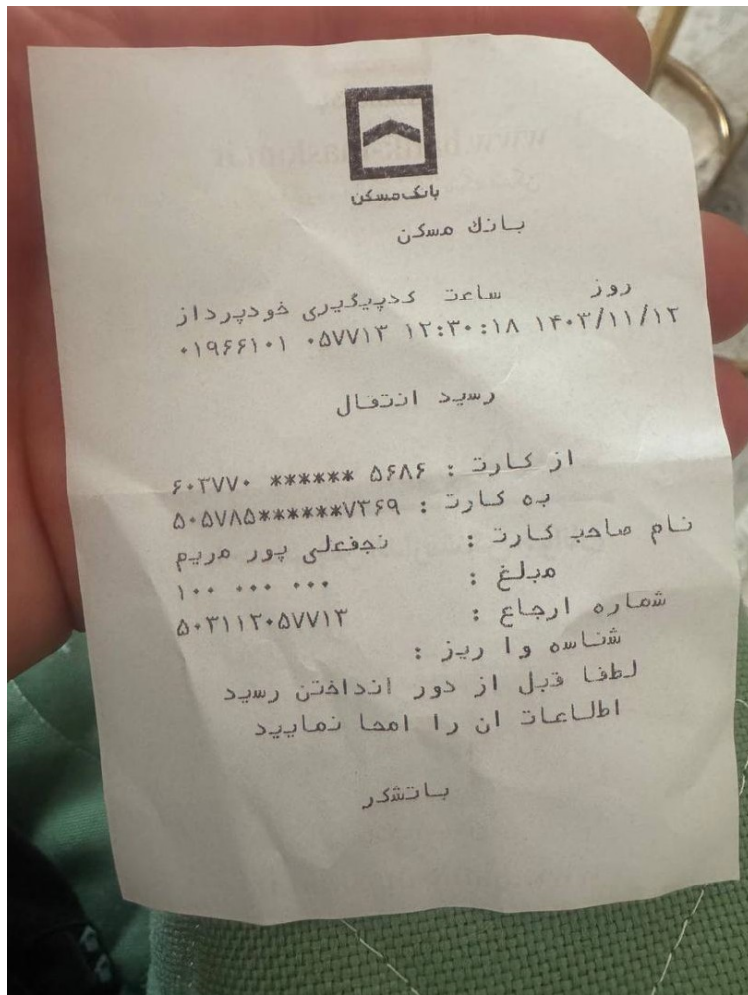 بانک مسکن
بانك مسكن
روز ساعت كدپيگيري خودپرداز
۱۴۰۳/۱۱/۱۲ ۱۲:۳۰:۱۸ ۰۵۷۷۱۳ ۰۱۹۶۶۱۰۱
رسيد انتقال
از كارت : ۶۰۳۷۷۰ ****** ۵۶۸۶
به كارت : ۵۰۵۷۸۵******۷۳۶۹
نام صاحب كارت : نجفعلي پور مريم
مبلغ : ۱۰۰ ۰۰۰ ۰۰۰
شماره ارجاع : ۵۰۳۱۱۲۰۵۷۷۱۳
شناسه وا ريز :
لطفا قبل از دور انداختن رسيد
اطلاعات ان را امحا نماييد
باتشكر